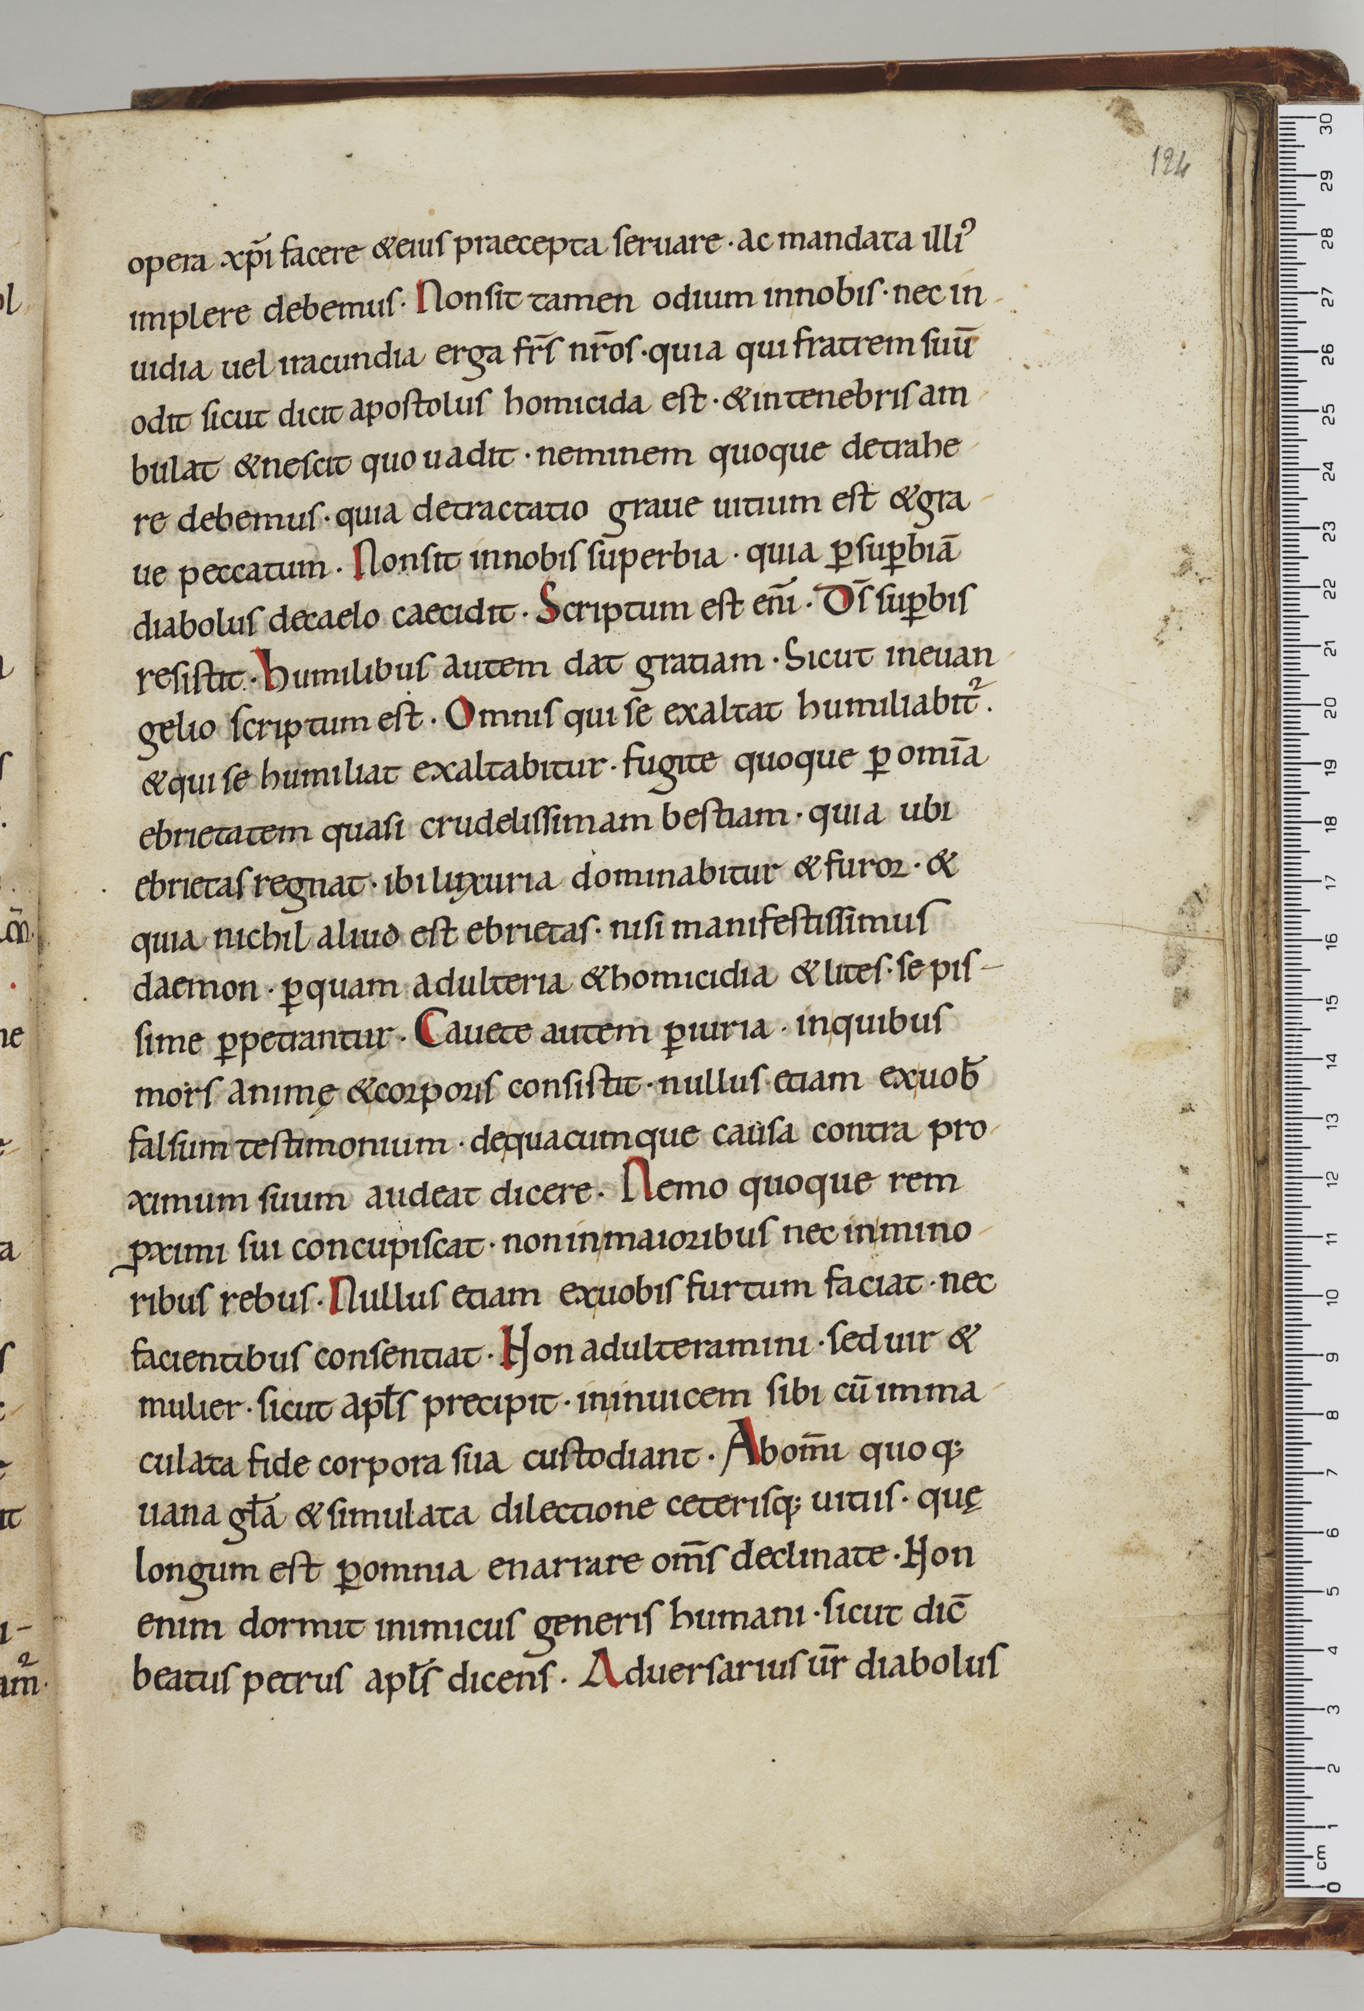 124
opera xp̄i facere & eius praecepta seruare · ac mandata illiꝰ
implere debemus · Non sit tamen odium in nobis · nec in
uidia uel iracundia erga fr̄s nr̄os · quia qui fratrem suū
odit sicut dicit apostolus homicida est · & in tenebris am
bulat & nescit quo uadit · neminem quoque detrahe
re debemus · quia detractatio graue uitium est & gra
ue peccatum · Non sit in nobis superbia · quia ꝑ suꝑbiā
diabolus de caelo caecidit · Scriptum est eni̅ · Ds̄ suꝑbis
resistit · humilibus autem dat gratiam · Sicut in euan
gelio scriptum est · Omnis qui se exaltat humiliabit᷑ .
& qui se humiliat exaltabitur · fugite quoque ꝑ omīa
ebrietatem quasi crudelissimam bestiam · quia ubi
ebrietas regnat · ibi luxuria dominabitur & furor · &
quia nichil aliud est ebrietas · nisi manifestissimus
daemon · ꝑ quam adulteria & homicidia & lites · sepis-
sime ꝑpetrantur · Cauete autem ꝑiuria · in quibus
mors animę & corporis consistit · nullus etiam ex uob̄
falsum testimonium · de quacumque causa contra pro
ximum suum audeat dicere · Nemo quoque rem
ꝓximi sui concupiscat · non in maioribus nec in mino
ribus rebus · Nullus etiam ex uobis furtum faciat · nec
facientibus consentiat · Non adulteramini · sed uir &
mulier · sicut apƚs precipit · in inuicem sibi cū imma
culata fide corpora sua custodiant · Ab om̄i quoq;
uana gƚa & simulata dilectione ceterisq; uitiis · quę
longum est ꝑ omnia enarrare om̄s declinate · Non
enim dormit inimicus generis humani · sicut dic̄
beatus petrus apƚs dicens · Aduersarius ur̄ diabolus